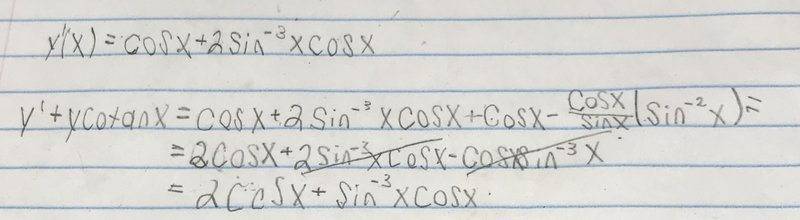 y'(x) = cosx + 2sin⁻³xcosx
y' + ycotanx = cosx + 2sin⁻³xcosx + cosx - cosx/sinx (sin⁻²x) =
= 2cosx + 2sin⁻³xcosx - cosxsin⁻³x
= 2cosx + sin⁻³xcosx.